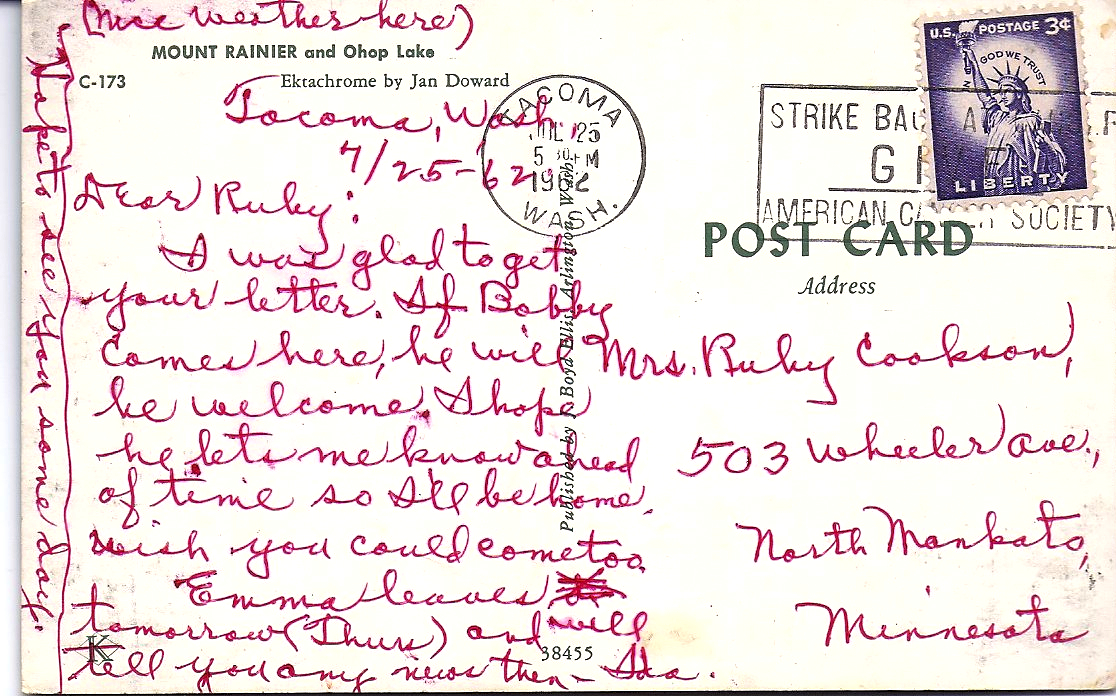 (Nice weather here)
MOUNT RAINIER and Ohop Lake
C-173
Ektachrome by Jan Doward
Tacoma, Wash.
7/25-62.
Dear Ruby:
I was glad to get
your letter. If Bobby
comes here, he will
be welcome. I hope
he lets me know ahead
of time so I'll be home.
wish you could come too.
Emma leaves
tomorrow (Thurs) and will
tell you any news then - Ida.
Hope to see you some day.
K
38455
Published by J. Boyd Ellis, Arlington, Wash.
TACOMA
JUL 25
5 30 PM
1962
WASH.
STRIKE BA
G
AMERICAN CANCER SOCIETY
U.S. POSTAGE 3¢
IN GOD WE TRUST
LIBERTY
POST CARD
Address
Mrs. Ruby Cookson,
503 Wheeler Ave.,
North Mankato,
Minnesota